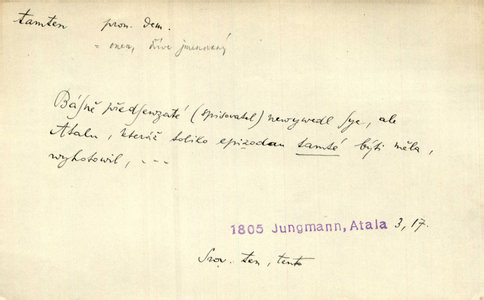 tamten pron. dem.
= onen, dříve jmenovaný
Básně předsewzaté (spisovatel) newywedl sye, ale
Atalu, kteráž toliko epizodau tamté býti měla,
wyhotowil, – – –
1805 Jungmann, Atala 3, 17.
Srov. ten, tento